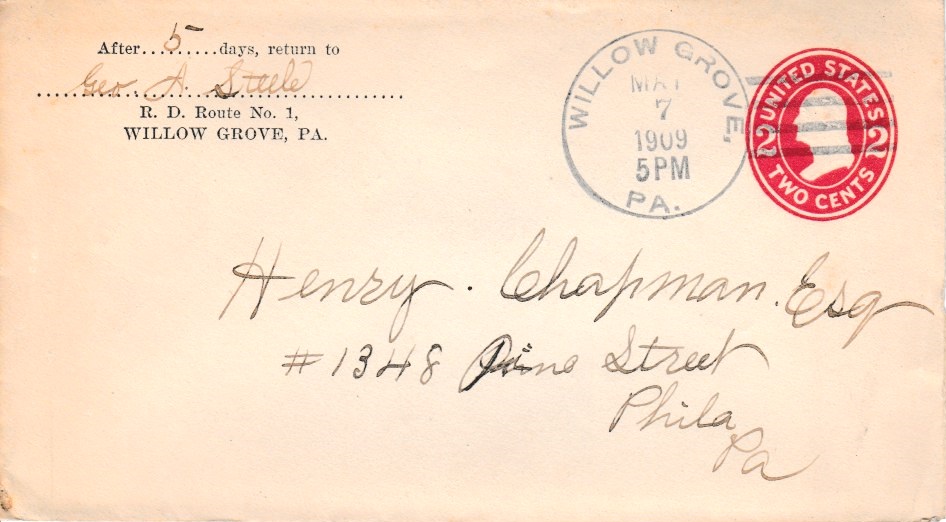 After.....5.......days, return to
Geo. A. Steele
R. D. Route No. 1,
WILLOW GROVE, PA.
WILLOW GROVE,
MAY
7
1909
5PM
PA.
UNITED STATES
2 2
TWO CENTS
Henry. Chapman. Esq
#1348 Pine Street
Phila
Pa